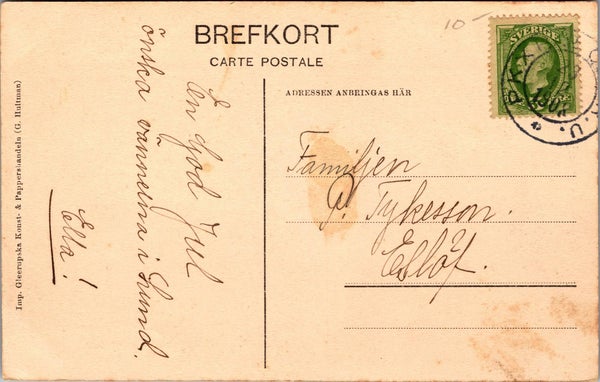 10-
BREFKORT
CARTE POSTALE
ADRESSEN ANBRINGAS HÄR
SVERIGE
En God Jul
önska vännerna i Lund.
Ella!
Familjen
P. Tykesson.
Eslöf.
Imp. Gleerupska Konst- & Pappershandeln (G. Hultman)